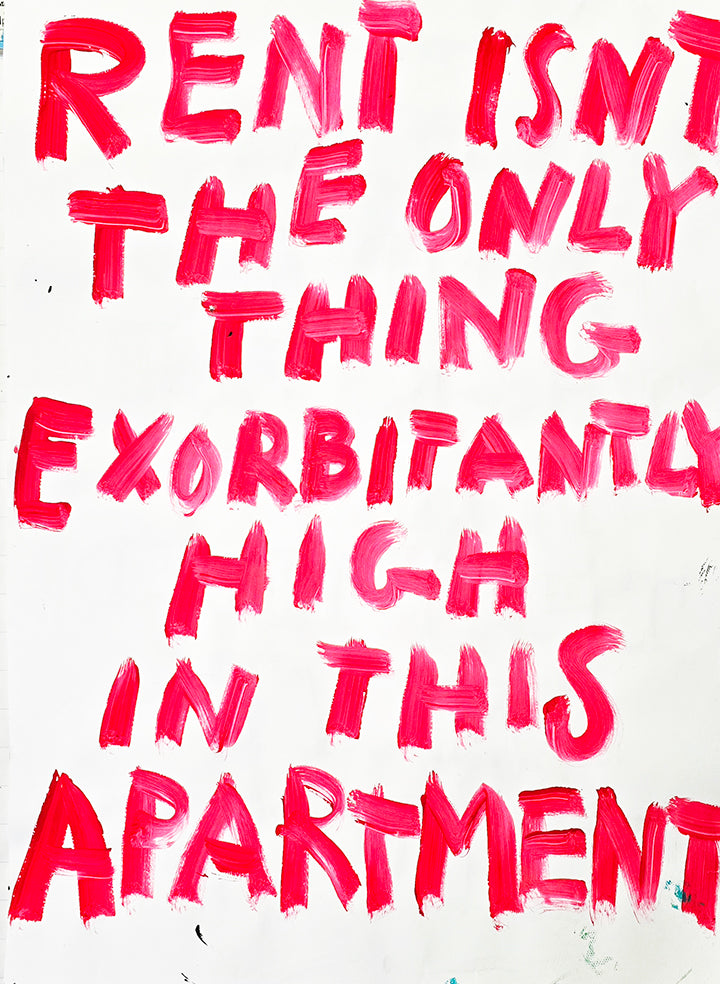 RENT ISNT
THE ONLY
THING
EXORBITANTLY
HIGH
IN THIS
APARTMENT